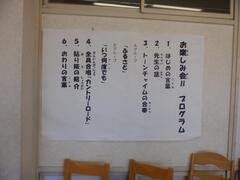 お楽しみ会!! プログラム
1、はじめの言葉
2、先生の話
3、トーンチャイムの合奏
「ふるさと」
「いつ何度でも」
4、全員合唱「カントリーロード」
5、貼り絵の紹介
6、おわりの言葉